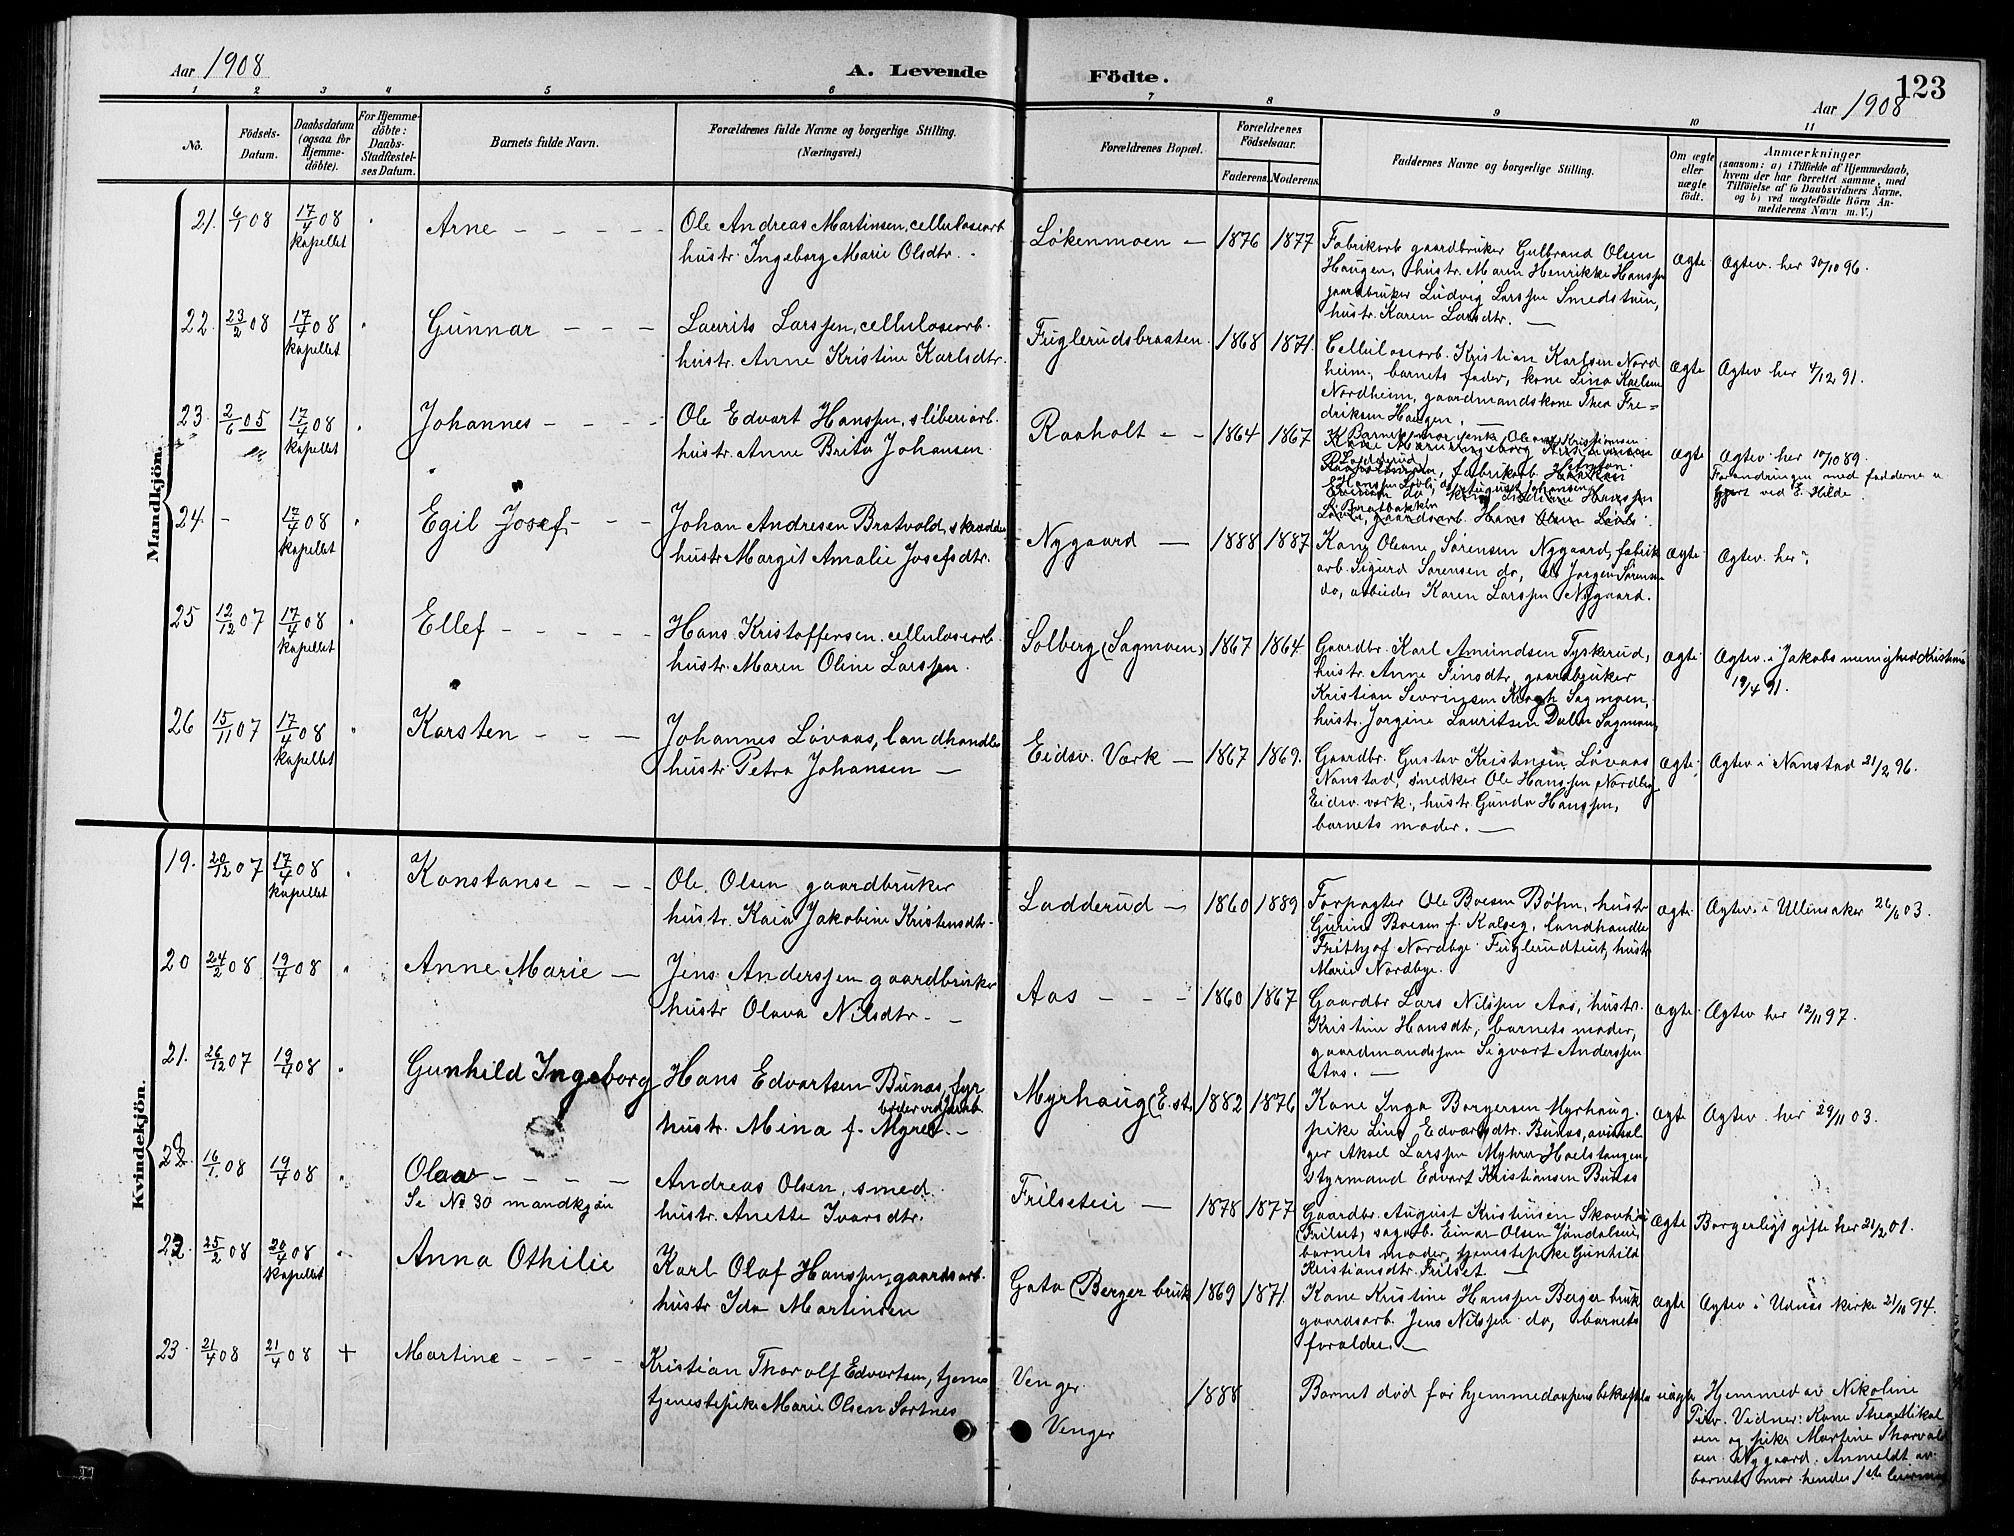 Aar 1908
A. Levende
Födte.
123
Aar 1908
1 2 3 4 5 6 7 8 9 10 11
No.
Födsels-Datum.
Daabsdatum (ogsaa for Hjemme-döbte).
For Hjemme-döbte: Daabs-Stadfæstel-ses Datum.
Barnets fulde Navn.
Forældrenes fulde Navne og borgerlige Stilling.
(Næringsvei.)
Forældrenes Bopæl.
Forældrenes Födselsaar.
Faderens. Moderens.
Faddernes Navne og borgerlige Stilling.
Om ægte eller uægte födt.
Anmærkninger
(saasom: a) i Tilfælde af Hjemmedaab,
hvem der har forrettet samme, med
Tilföielse af to Daabsvidners Navne.
og b) ved uægtefödte Börn An-
melderens Navn m. V.)
Mandkjön.
21. 6/1 08 17/4 08 kapellet
Arne
Ole Andreas Martinsen, cellulosearb
hustr. Ingeborg Marie Olsdtr.
Løkenmoen 1876 1877
Fabrikarb gaardbruker Gulbrand Olsen
Haugen, hustr. Maren Henrikke Hanssen
gaardbruker Ludvig Larssen Smedstuen,
hustr. Karen Larsdtr.
ægte
Ægtev. her 30/10 96.
22. 23/2 08 17/4 08 kapellet
Gunnar
Laurits Larssen, cellulosearb.
hustr. Anne Kristine Karlsdtr.
Fuglerudsbraaten 1868 1871.
Cellulosearb. Kristian Karlsen Nord
heim, barnets fader, kone Lina Karlsen
Nordheim, gaardmandskone Thea Fre=
driksen Haugen.
ægte
Ægtev her 4/12 91.
23. 2/6 05 17/4 08 kapellet
Johannes
Ole Edvart Hanssen, sliberiarb.
hustr. Anne Brita Johansen
Raaholt 1864 1867
ægte
Ægtev. her 10/10 89.
Forandringen med fadderne
gjort ved E. Hilde.
24. - 17/4 08 kapellet
Egil Josef
Johan Andresen Bratvold, skrædder
hustr Margit Amalie Josefsdtr.
Nygaard 1888 1887
Kone Oleane Sørensen Nygaard, fabrik
arb. Sigurd Sørensen do, do Jørgen Sørensen
do, arbeider Karen Larssen Nygaard.
ægte
Ægtev. her?
25 12/12 07 17/4 08 kapellet
Ellef
Hans Kristoffersen cellulosearb.
hustr. Maren Oline Larssen.
Solberg (Sagmoen) 1867 1864
Gaardbr. Karl Amundsen Tyskerud,
hustr. Anne Finsdtr, gaardbruker
Kristian Severinsen Krogh Sagmoen,
hustr. Jørgine Lauritsen Dalen Sagmoen,
ægte
Ægtev. i Jakobs menighed Kristiania
19/4 91.
26 15/11 07 17/4 08 kapellet
Karsten
Johannes Løvaas, landhandler
hustr Petra Johansen
Eidsv. Værk 1867 1869.
Gaardbr. Gustav Kristiansen Løvaas
Nanstad, snedker Ole Hanssen Nordby
Eidsv. værk, hustr. Gunda Hanssen,
barnets moder.
ægte
Ægtev i Nanstad 21/2 96.
Kvindekjön.
19. 20/12 07 17/4 08 kapellet
Konstanse
Ole Olsen gaardbruker
hustr. Kaia Jakobine Kristensdtr
Ladderud 1860 1889
Forpagter Ole Boesen Bøhn, hustr
Gurine Boesen f. Kalseg, landhandler
Frithjof Nordbye Fuglerudteiet, hustr
Marie Nordbye.
ægte
Ægtev. i Ullensaker 26/6 03.
20 24/2 08 19/4 08
Anne Marie
Jens Anderssen gaardbruker
hustr Olava Nilsdtr.
Aas 1860 1867
Gaardbr Lars Nilssen Aas, hustr.
Kristine Hansdtr, barnets moder,
gaardmandssøn Sigvart Anderssen
Aas.
ægte
Ægtev her 12/11 97.
21. 26/12 07 19/4 08
Gunhild Ingeborg
Hans Edvartsen Bunæs, fyr
bøder ved jernb
hustr. Mina f. Myrer.
Myrhaug (E. st. 1882 1876
Kone Inga Borgersen Myrhaug
pike Lina Edvardsdtr. Bunæs, avissæl
ger Aksel Larssen Myhrer Hoelstangen,
styrmand Edvart Kristiansen Bunæs
ægte
Ægtev. her 29/11 03.
22 16/1 08 19/4 08
Olaa
Se No 30 mandkjøn
Andreas Olsen, smed
hustr. Anette Ivarsdtr.
Frilseteie 1878 1877
Gaardbr. August Kristiansen Skovhei
Frilset, sagarb. Einar Olsen Jøndalseie,
barnets moder, tjenestepike Gunhild
Kristiansdtr Frilset.
ægte
Borgerligt gifte her 21/2 01.
22. 25/2 08 20/4 08 kapellet
Anna Othilie
Karl Olaf Hanssen, gaardsarb.
hustr Ida Martinsen
Gata (Berger bruk 1869 1871.
Kone Kristine Hanssen Berger bruk
gaardsarb. Jens Nilssen do, barnets
forældre.
ægte
Ægtev i Udnæs kirke 21/10 94.
23 21/4 08 21/4 08 +
Martine
Kristian Thoralf Edvartsen, tjener
tjenestepike Marie Olsen Sørtnes
Venger.
Venger
1888
Barnet død før hjemmedaapens bekræftelse
uægte
Hjemmed av Nikoline
Vidner: Kone Thea Mikal
sen og pike Martine Thorvald
sen Nygaard. Anmeldt av
barnets mor hendes 1ste